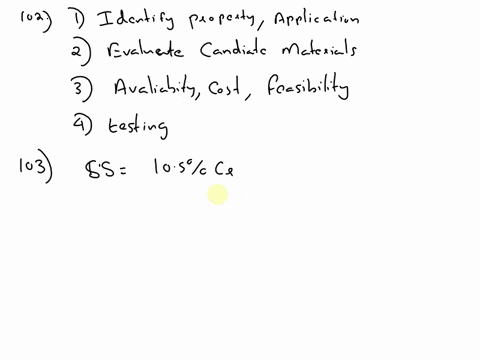 102) 1) Identify property, Application
2) Evaluate Candiate Materials
3) Avaliabity, Cost, feasibility
4) testing
103) SS = 10.5% Cr